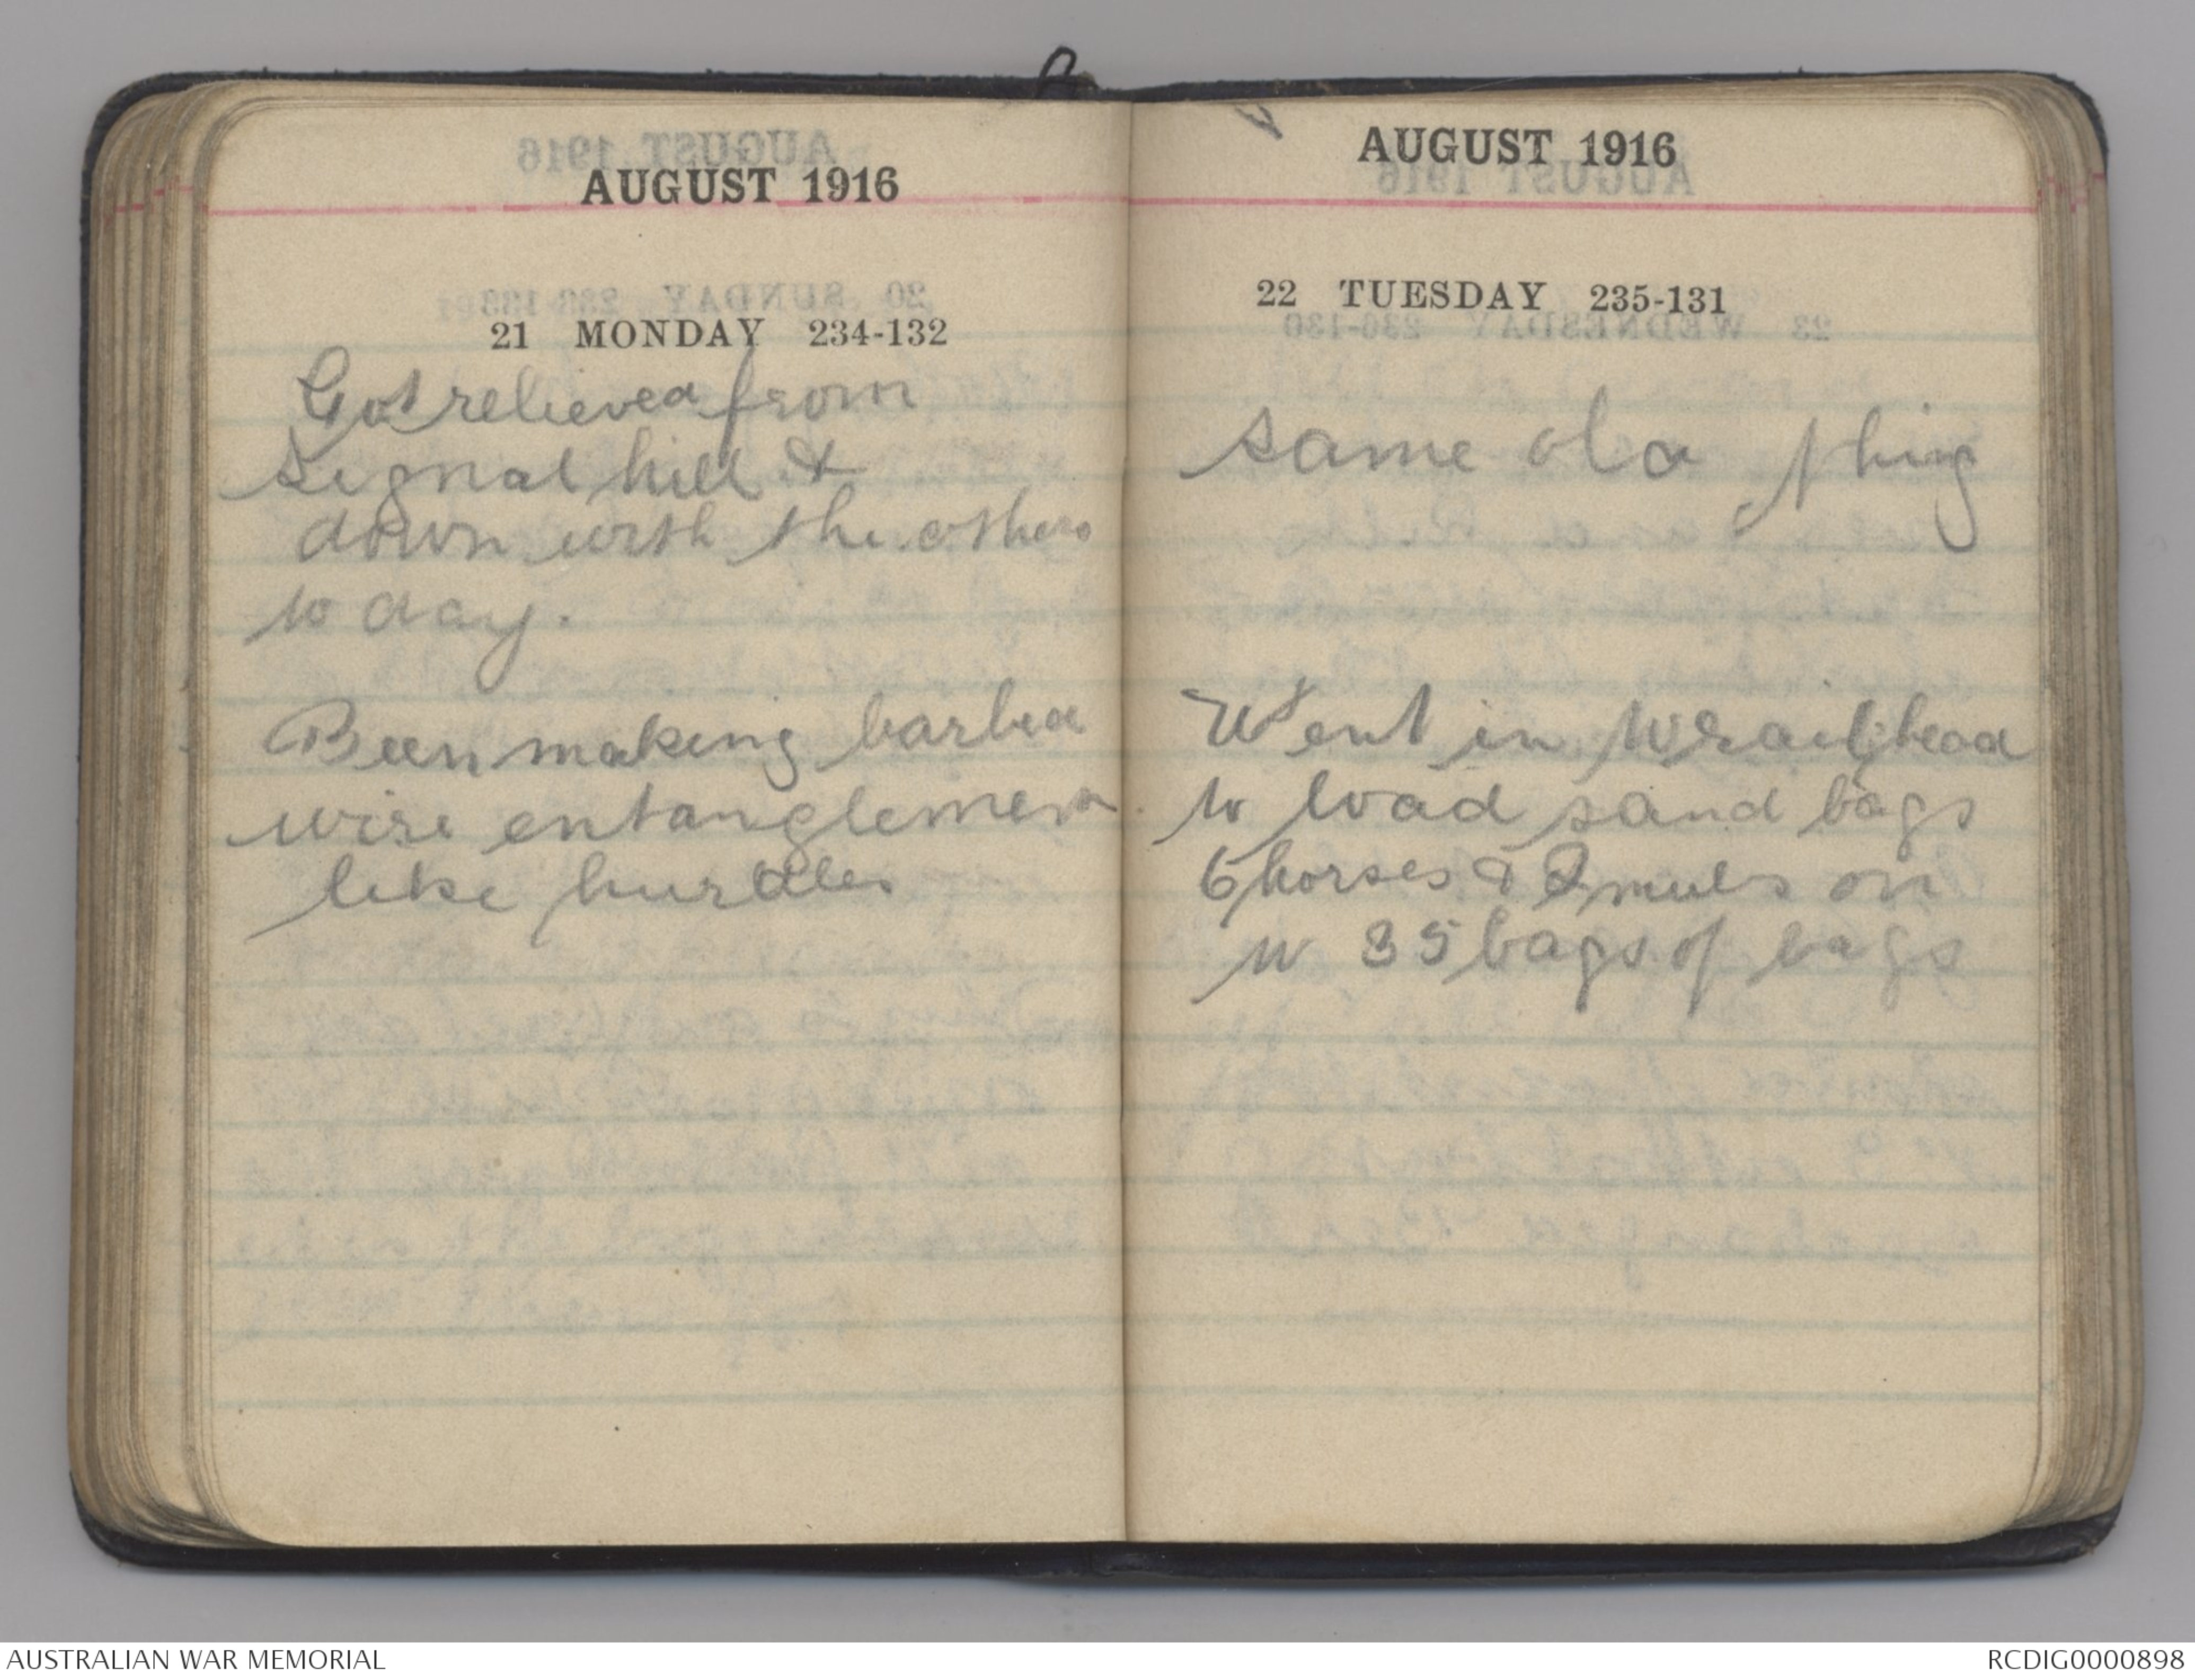 AUGUST 1916
21 MONDAY 234-132
Got relieved from
Signal hill &
down with the others
to day.
Been making barbed
wire entanglement
like hurdles
AUGUST 1916
22 TUESDAY 235-131
same old thing
Went in to railhead
to load sand bags
6 horses & 2 mules on
to 35 bags of bags
AUSTRALIAN WAR MEMORIAL
RCDIG0000898